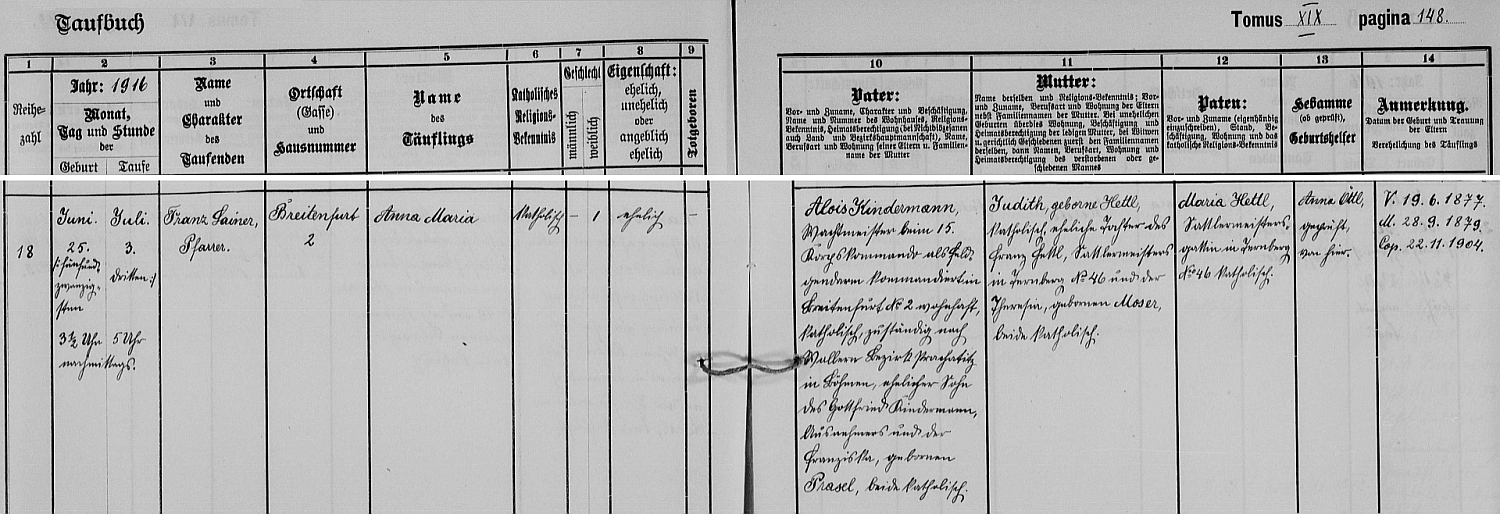 Taufbuch
Tomus XIX pagina 148.
1 2 3 4 5 6 7 8 9
10 11 12 13 14
Reihe-
zahl
Jahr: 1916
Monat,
Tag und Stunde
der
Geburt Taufe
Name
und
Charakter
des
Taufenden
Ortschaft
(Gasse)
und
Hausnummer
Name
des
Täuflings
Katholisches
Religions-
Bekenntnis
Geschlecht
männlich
weiblich
Eigenschaft:
ehelich,
unehelich
oder
angeblich
ehelich
Totgeboren
Vater:
Vor- und Zuname, Charakter und Beschäftigung,
Name und Nummer des Wohnhauses, Religions-
Bekenntnis, Heimatsberechtigung (bei Nichtbiligensanen
auch Land- und Bezirkshauptmannschaft), Name,
Berufsart und Wohnung seiner Eltern u. Familien-
name der Mutter
Mutter:
Name derselben und Religions-Bekenntnis; Vor-
und Zuname, Berufsart und Wohnung der Eltern
nebst Familiennamen der Mutter. Bei unehelichen
Geburten überdies Wohnung, Beschäftigung und
Heimatsberechtigung der ledigen Mutter, bei Witwen
u. gerichtlich Geschiedenen zuerst den Familiennamen
derselben, dann Namen, Berufsart, Wohnung und
Heimatsberechtigung des verstorbenen oder ge-
schiedenen Mannes
Paten:
Vor- und Zuname (eigenhändig
einzuschreiben), Stand, Be-
schäftigung, Wohnung und das
katholische Religions-Bekenntnis
Hebamme
(ob geprüft),
Geburtshelfer
Anmerkung.
Datum der Geburt und Trauung
der Eltern
Verehelichung des Täuflings
18
Juni
25.
/:fünfund-
zwanzig-
sten
3½ Uhr
nachmittags.
Juli
3.
dritten:/
5 Uhr
Franz Lainer,
Pfarrer.
Breitenfurt
2
Anna Maria
katholisch
–
1
ehelich
–
Alois Kindermann,
Wachtmeister beim 15.
Korpskommando als Feld-
gendarm kommandiert in
Breitenfurt No 2 wohnhaft,
katholisch, zuständig nach
Wallern Bezirk Prachatitz
in Böhmen, ehelicher Sohn
des Gottfried Kindermann,
Ausnehmers und der
Franziska, gebornen
Prasel, beide katholisch.
Judith, geborne Hettl,
katholisch, eheliche Tochter des
Franz Hettl, Sattlermeisters
in Ternberg No 46 und der
Theresia, gebornen Moser,
beide katholisch.
Maria Hettl,
Sattlermeisters-
gattin in Ternberg
No 46 katholisch.
Anna Öttl,
geprüft,
von hier.
V. 19. 6. 1877.
M. 28. 9. 1879.
Cop. 22. 11. 1904.